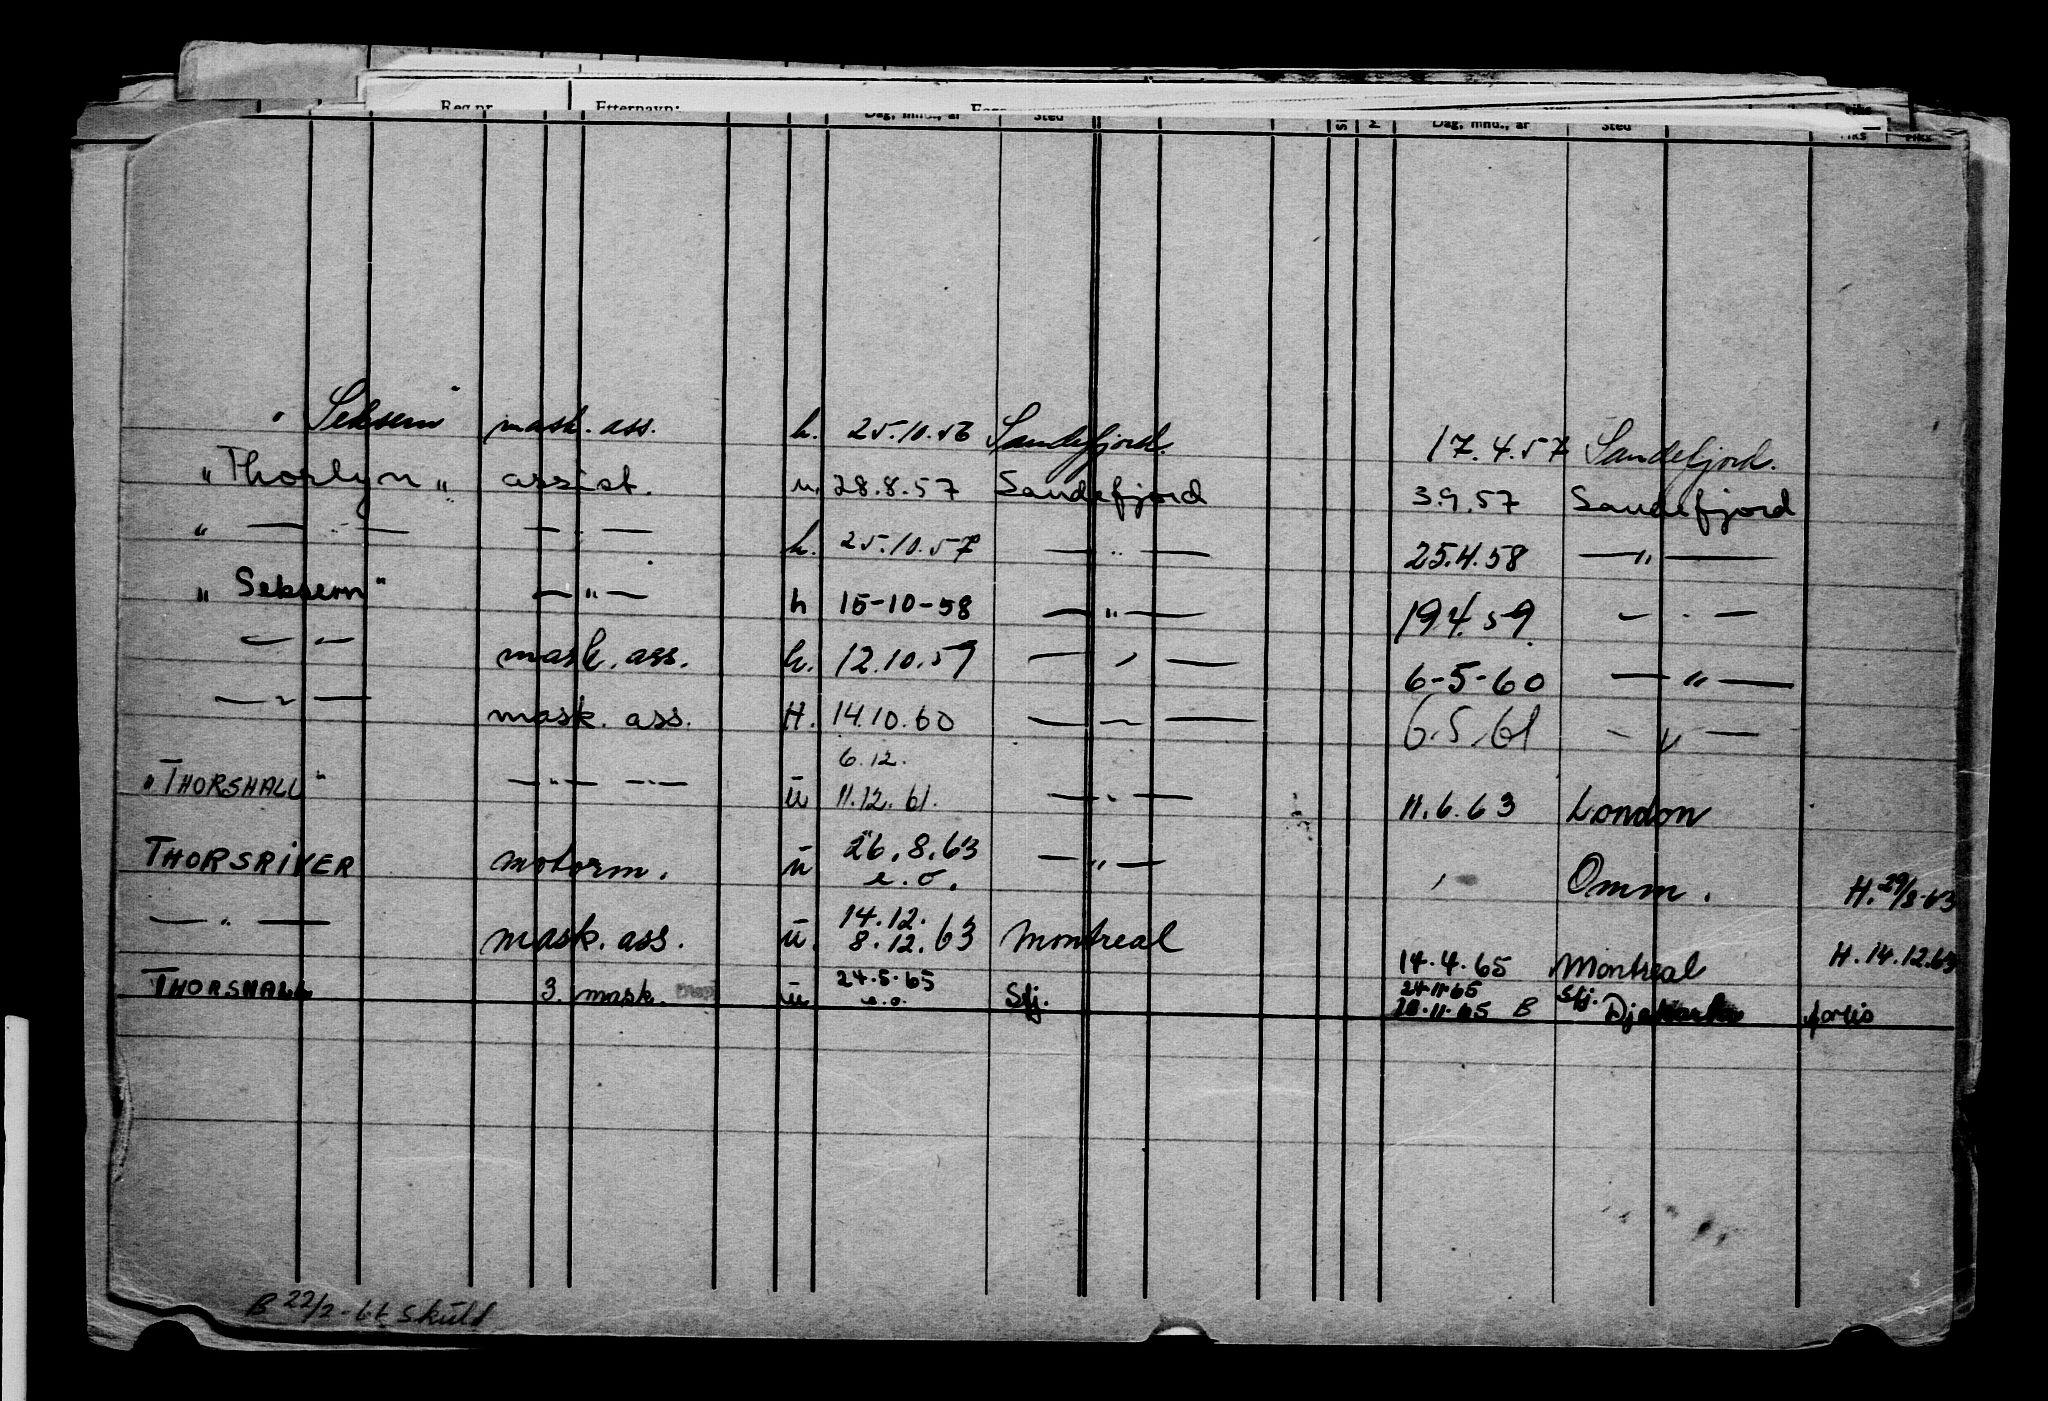 Reg.nr. Etternavn:
Dag, mnd., år Sted Dag, mnd., år Sted
"Seksern" mask. ass. h. 25.10.56 Sandefjord. 17.4.57 Sandefjord.
"Thorlyn" assist. u. 28.8.57 Sandefjord 3.9.57 Sandefjord
" — " — — " — h. 25.10.57 — " — 25.4.58 — " —
"Seksern" — " — h 15-10-58 — " — 19.4.59 — " —
— " — mask. ass. h. 12.10.59 — " — 6-5-60 — " —
— " — mask. ass. H. 14.10.60 — " — 6.5.61 — " —
6.12.
"THORSHALL" — " — — " — u 11.12.61. — " — 11.6.63 London
THORSRIVER motorm. u 26.8.63 — " — Omm. H. 29/8-63
e.o.
— " — mask. ass. u. 14.12. 8.12.63 Montreal 14.4.65 Montreal H. 14.12.63
THORSHALL 3. mask. u 24.5.65 Sfj. 24.11.65 Sfj.
e.o. 20.11.65 B Djakarta forlis
B 22/2-66 Skuld